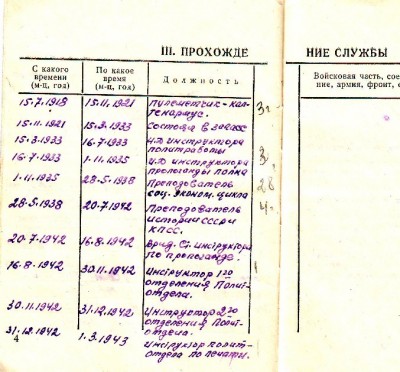 III. ПРОХОЖДЕ
НИЕ СЛУЖБЫ
С какого времени (м-ц, год)
По какое время (м-ц, год)
Должность
Войсковая часть, сое
ние, армия, фронт, о
15.7.1918 15.11.1921 Пулеметчик-кап-
тенармус.
15.11.1921 15.3.1933 Состоял в запасе
15.3.1933 16.7.1933 И.Д. инструктора
политработы
16.7.1933 1.11.1935 И.Д. инструктора
пропаганды полка
1.11.1935 28.5.1938 Преподаватель
соц. эконом. цикла
28.5.1938 20.7.1942 Преподаватель
истории СССР и
КПСС.
20.7.1942 16.8.1942 Врид. Ст. инструктора
по пропаганде.
16.8.1942 30.11.1942 Инструктор 1го
отделения Полит-
отдела.
30.11.1942 31.12.1942 Инструктор 2го
отделения Полит-
отдела.
31.12.1942 1.3.1943 Инструктор полит-
отдела по печати.
4